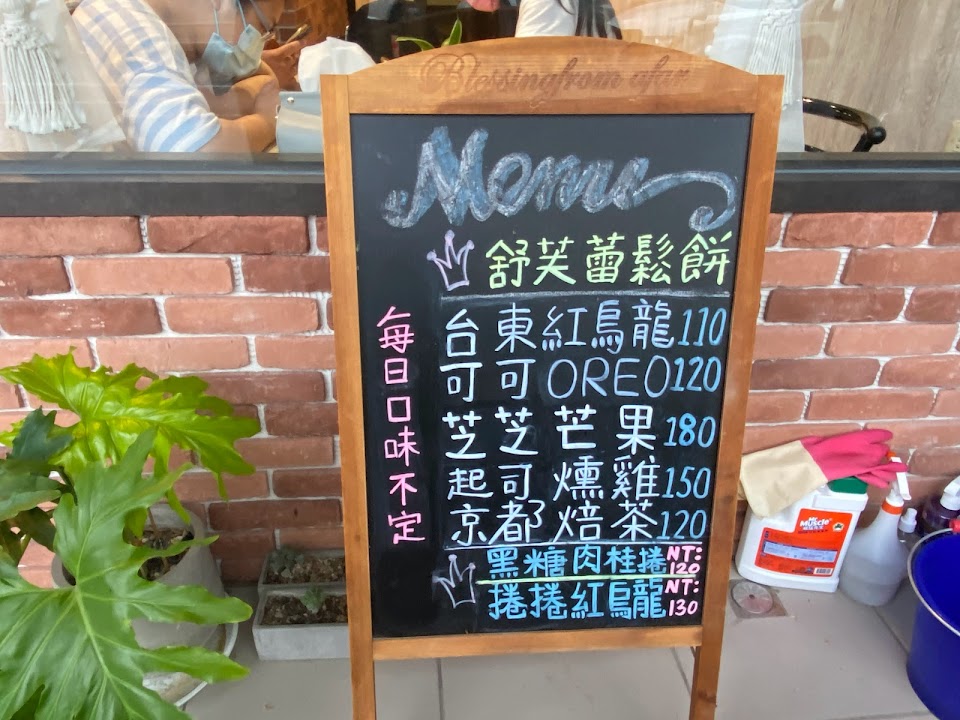 Blessing from afar
Menu
舒芙蕾鬆餅
每日口味不定
台東紅烏龍110
可可OREO120
芝芝芒果180
起司燻雞150
京都焙茶120
黑糖肉桂捲NT:120
捲捲紅烏龍NT:130
Mr Muscle